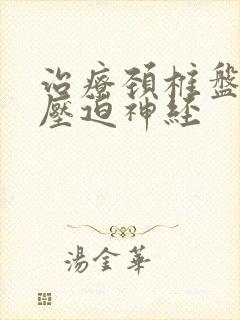 治療頚椎盤
壓迫神経
湯金華